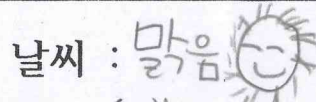 날씨 : 맑음